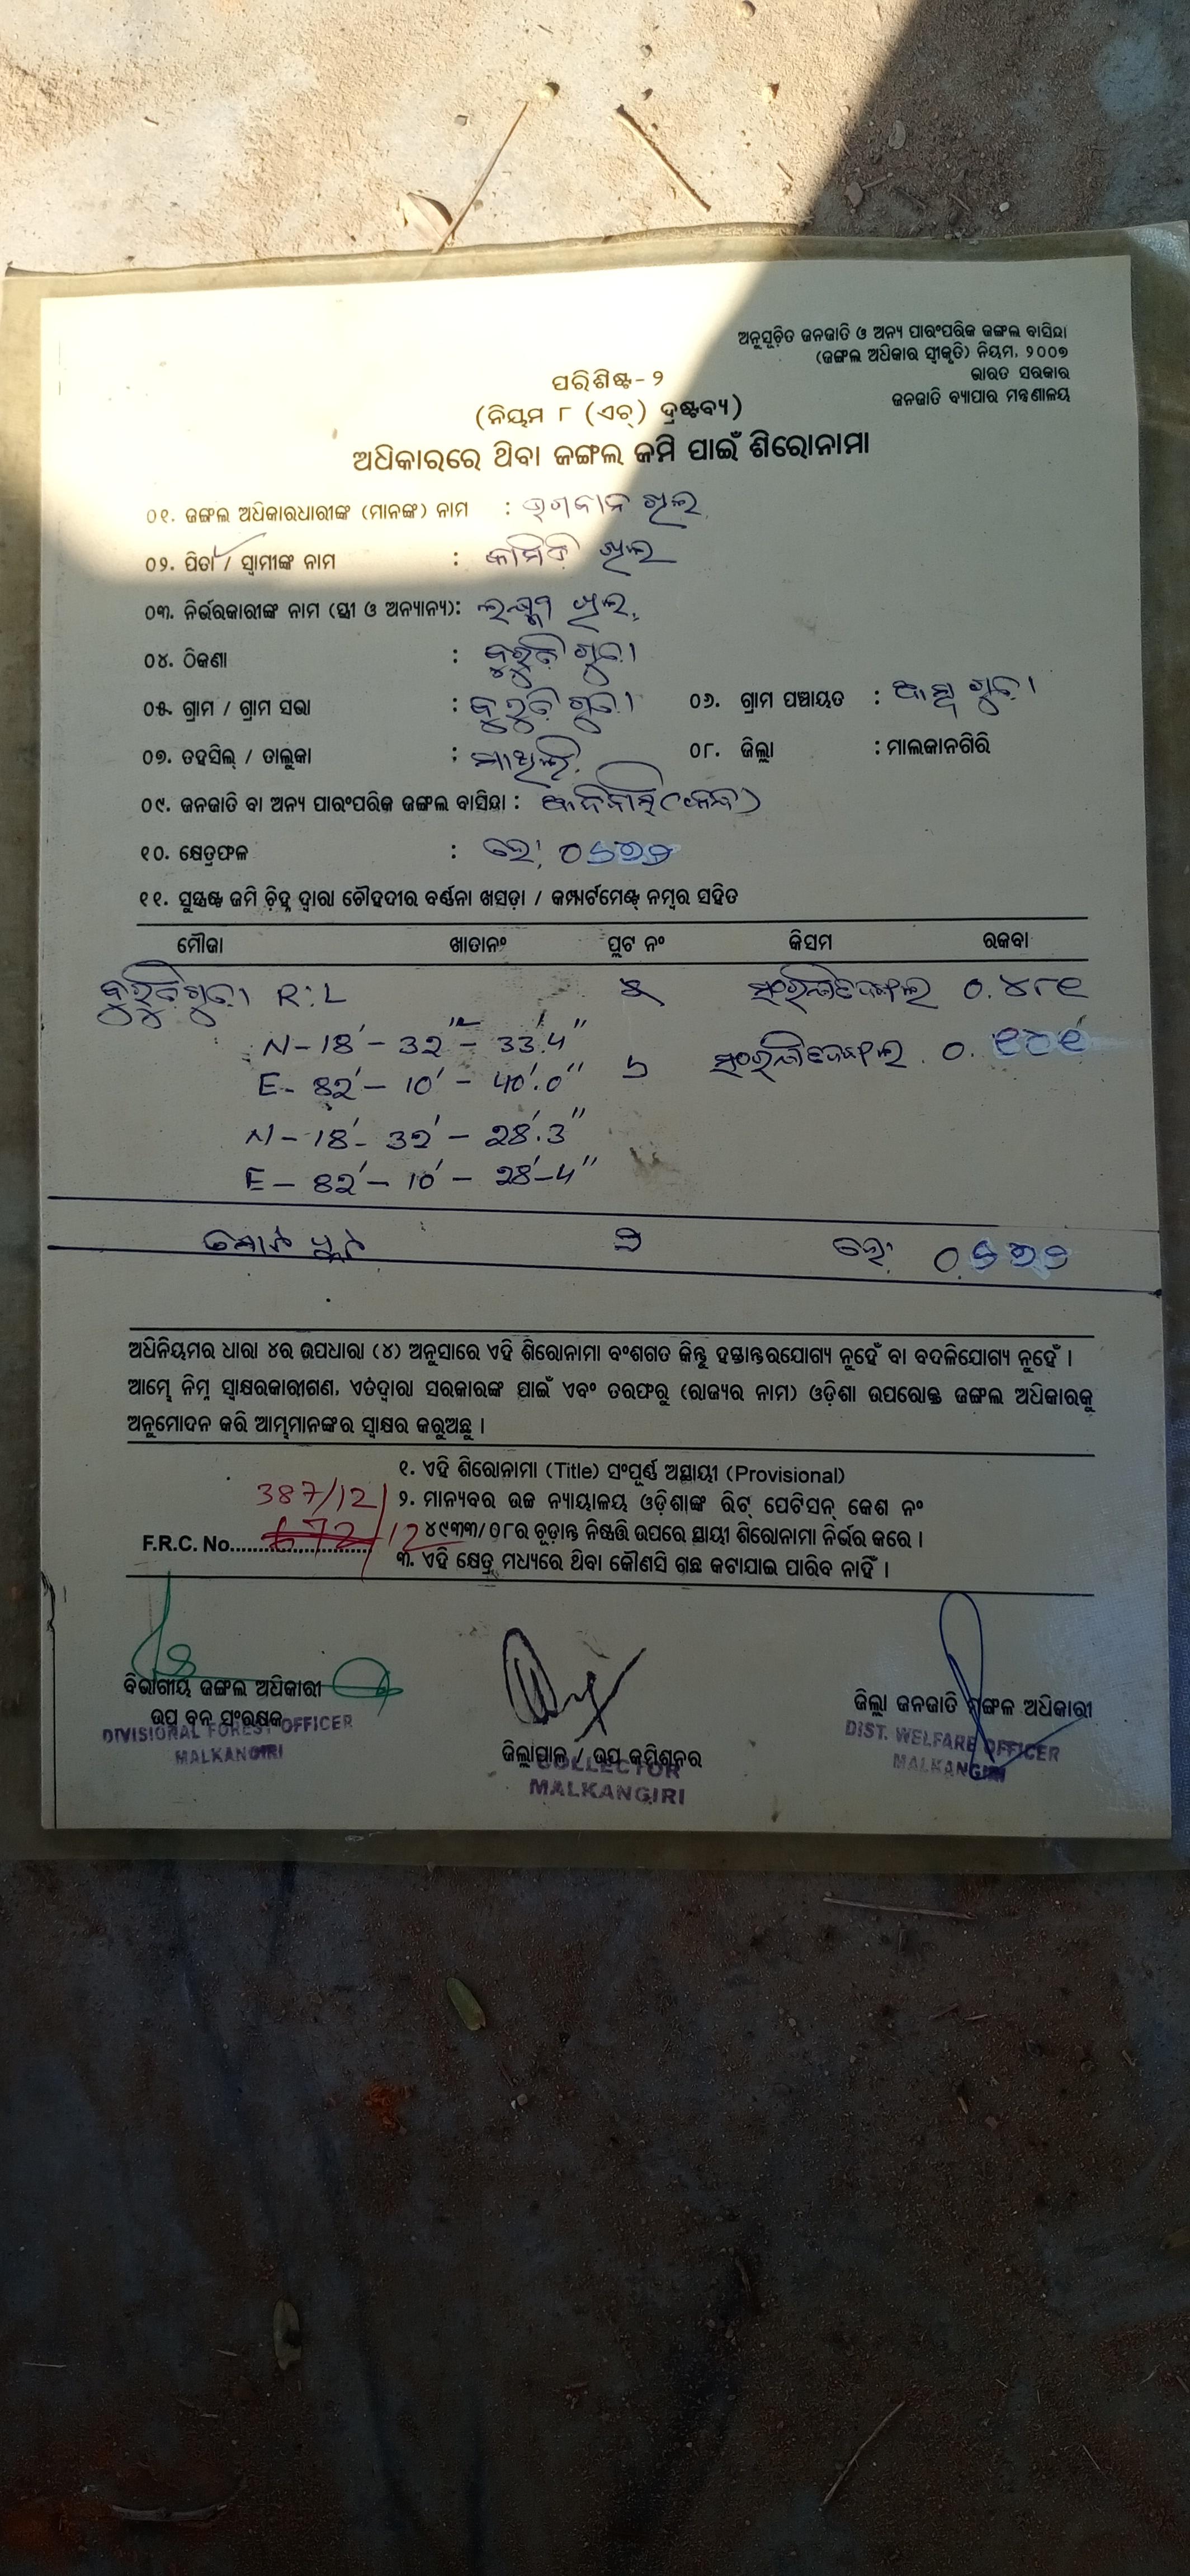 ଅନୁସୂଚିତ ଜନଜାତି ଓ ଅନ୍ୟ ପାରଂପରିକ ଜଙ୍ଗଲ ବାସିନ୍ଦା
(ଜଙ୍ଗଲ ଅଧିକାର ସ୍ୱୀକୃତି) ନିୟମ, ୨୦୦୭
ଭାରତ ସରକାର
ଜନଜାତି ବ୍ୟାପାର ମନ୍ତ୍ରଣାଳୟ
ପରିଶିଷ୍ଟ-୨
(ନିୟମ ୮ (ଏଚ୍) ଦ୍ରଷ୍ଟବ୍ୟ)
ଅଧିକାରରେ ଥିବା ଜଙ୍ଗଲ ଜମି ପାଇଁ ଶିରୋନାମା
୦୧. ଜଙ୍ଗଲ ଅଧିକାରଧାରୀଙ୍କ (ମାନଙ୍କ) ନାମ : ଭଗବାନ ଖିଲ
୦୨. ପିତା / ସ୍ୱାମୀଙ୍କ ନାମ : ଖିଲ
୦୩. ନିର୍ଭରକାରୀଙ୍କ ନାମ (ସ୍ତ୍ରୀ ଓ ଅନ୍ୟାନ୍ୟ): ଖିଲ
୦୪. ଠିକଣା :
୦୫. ଗ୍ରାମ / ଗ୍ରାମ ସଭା : ୦୬. ଗ୍ରାମ ପଞ୍ଚାୟତ :
୦୭. ତହସିଲ୍ / ତାଲୁକା : ମାଥିଲି ୦୮. ଜିଲ୍ଲା : ମାଲକାନଗିରି
୦୯. ଜନଜାତି ବା ଅନ୍ୟ ପାରଂପରିକ ଜଙ୍ଗଲ ବାସିନ୍ଦା :
୧୦. କ୍ଷେତ୍ରଫଳ : ହେ:
୧୧. ସୁସ୍ପଷ୍ଟ ଜମି ଚିହ୍ନ ଦ୍ୱାରା ଚୌହଦୀର ବର୍ଣ୍ଣନା ଖସଡ଼ା / କମ୍ପାର୍ଟମେଣ୍ଟ୍ ନମ୍ବର ସହିତ
ମୌଜା ଖାତାନଂ ପ୍ଲଟ ନଂ କିସମ ରକବା
R.L ୫ ୦.୪୮୧
N-18'-32"-33'.4"
୬ ୦.
E-82'-10'-40'.0"
N-18'-32'-28'.3"
E-82'-10'-28'-4"
ମୋଟ ପ୍ଲଟ ୨ ହେ:
ଅଧିନିୟମର ଧାରା ୪ର ଉପଧାରା (୪) ଅନୁସାରେ ଏହି ଶିରୋନାମା ବଂଶଗତ କିନ୍ତୁ ହସ୍ତାନ୍ତରଯୋଗ୍ୟ ନୁହେଁ ବା ବଦଳିଯୋଗ୍ୟ ନୁହେଁ ।
ଆମ୍ଭେ ନିମ୍ନ ସ୍ୱାକ୍ଷରକାରୀଗଣ, ଏତଦ୍ୱାରା ସରକାରଙ୍କ ପାଇଁ ଏବଂ ତରଫରୁ (ରାଜ୍ୟର ନାମ) ଓଡ଼ିଶା ଉପରୋକ୍ତ ଜଙ୍ଗଲ ଅଧିକାରକୁ
ଅନୁମୋଦନ କରି ଆମ୍ଭମାନଙ୍କର ସ୍ୱାକ୍ଷର କରୁଅଛୁ ।
୧. ଏହି ଶିରୋନାମା (Title) ସଂପୂର୍ଣ୍ଣ ଅସ୍ଥାୟୀ (Provisional)
387/12
୨. ମାନ୍ୟବର ଉଚ୍ଚ ନ୍ୟାୟାଳୟ ଓଡ଼ିଶାଙ୍କ ରିଟ୍ ପେଟିସନ୍ କେଶ ନଂ
F.R.C. No. 672/12
୪୯୩୩/୦୮ର ଚୂଡ଼ାନ୍ତ ନିଷ୍ପତ୍ତି ଉପରେ ସ୍ଥାୟୀ ଶିରୋନାମା ନିର୍ଭର କରେ ।
୩. ଏହି କ୍ଷେତ୍ର ମଧ୍ୟରେ ଥିବା କୌଣସି ଗଛ କଟାଯାଇ ପାରିବ ନାହିଁ ।
ବିଭାଗୀୟ ଜଙ୍ଗଲ ଅଧିକାରୀ
ଉପ ବନ ସଂରକ୍ଷକ
DIVISIONAL FOREST OFFICER
MALKANGIRI
ଜିଲ୍ଲାପାଳ / ଉପ କମିଶନର
COLLECTOR
MALKANGIRI
ଜିଲ୍ଲା ଜନଜାତି ମଙ୍ଗଳ ଅଧିକାରୀ
DIST. WELFARE OFFICER
MALKANGIRI